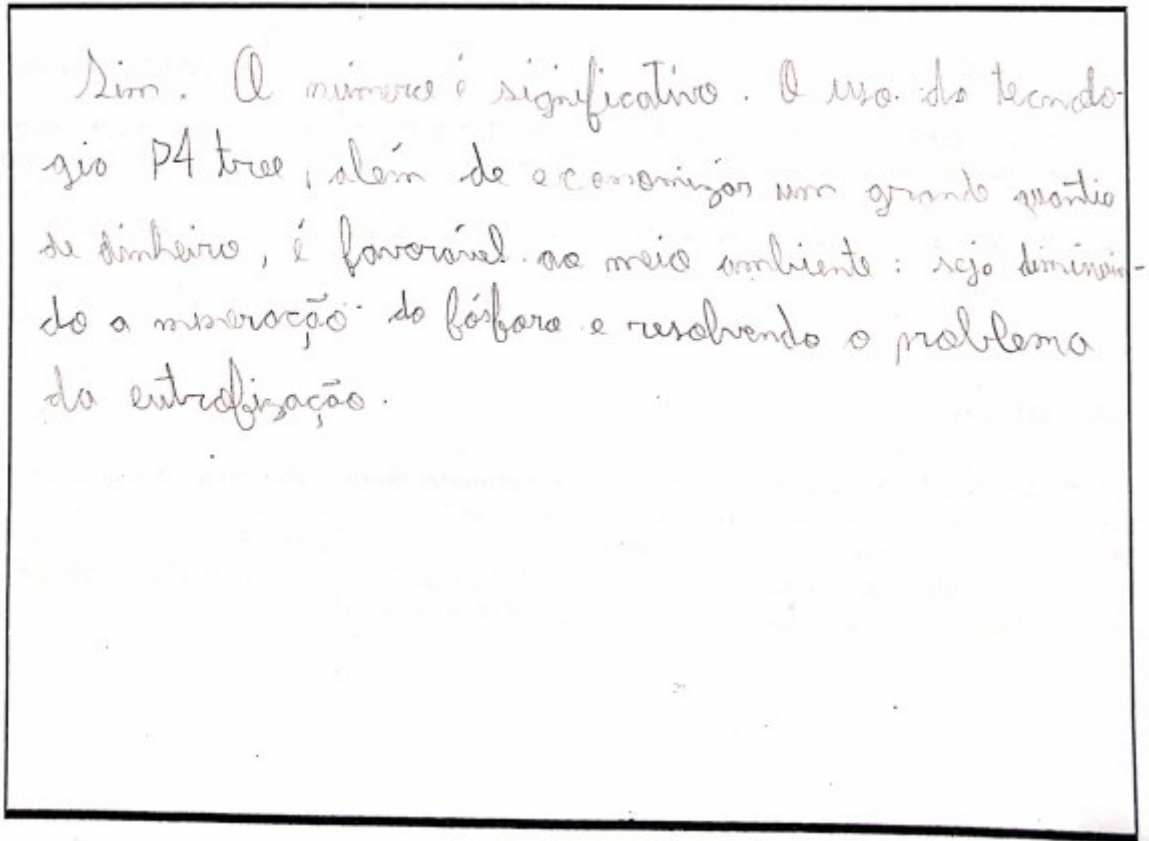 Sim. O número é significativo. O uso da tecnolo-
gia P4 tree, além de economizar um grande quantia
de dinheiro, é favorável ao meio ambiente: seja diminuin-
do a mineração do fósforo e resolvendo o problema
da eutrofização.